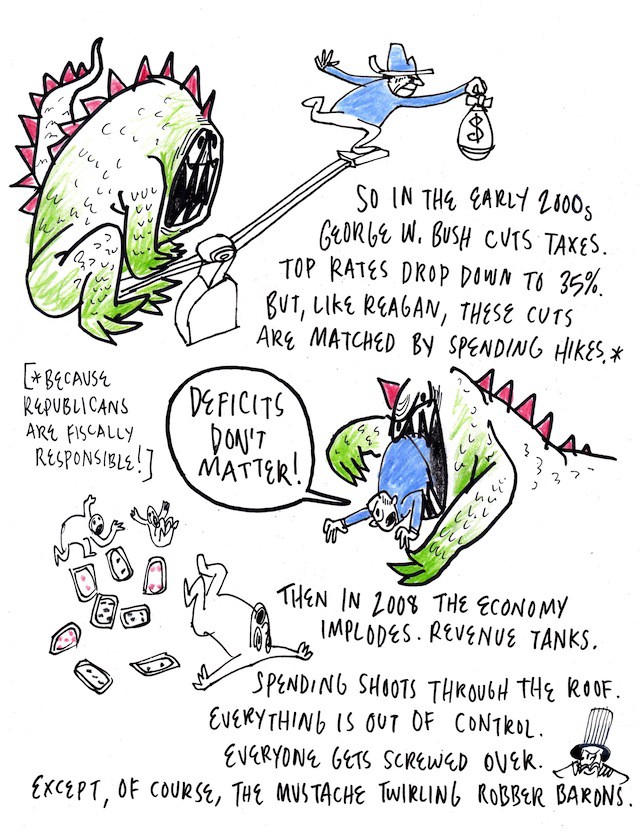 $
SO IN THE EARLY 2000s
GEORGE W. BUSH CUTS TAXES.
TOP RATES DROP DOWN TO 35%.
BUT, LIKE REAGAN, THESE CUTS
ARE MATCHED BY SPENDING HIKES.*
[*BECAUSE
REPUBLICANS
ARE FISCALLY
RESPONSIBLE!]
DEFICITS
DON'T
MATTER!
THEN IN 2008 THE ECONOMY
IMPLODES. REVENUE TANKS.
SPENDING SHOOTS THROUGH THE ROOF.
EVERYTHING IS OUT OF CONTROL.
EVERYONE GETS SCREWED OVER.
EXCEPT, OF COURSE, THE MUSTACHE TWIRLING ROBBER BARONS.